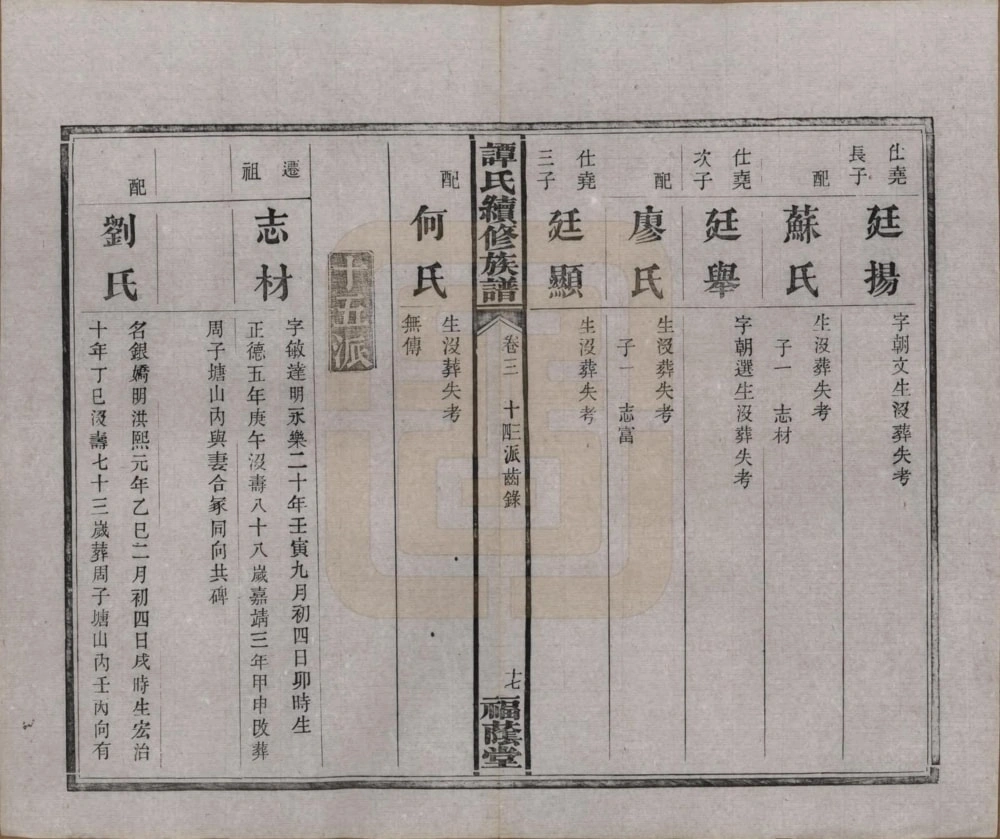 仕堯長子
廷揚
字朝文生沒葬失考
配
蘇氏
生沒葬失考
子一 志材
仕堯次子
廷舉
字朝選生沒葬失考
配
廖氏
生沒葬失考
子一 志富
仕堯三子
廷顯
生沒葬失考
譚氏續修族譜
卷三 十四三派齒錄
十七
福蔭堂
配
何氏
生沒葬失考
無傳
派
遷祖
志材
字敏達明永樂二十年壬寅九月初四日卯時生
正德五年庚午沒壽八十八嵗嘉靖三年甲申改葬
周子塘山內與妻合冢同向共碑
配
劉氏
名銀嬌明洪熙元年乙巳二月初四日戌時生宏治
十年丁巳沒壽七十三嵗葬周子塘山內壬丙向有